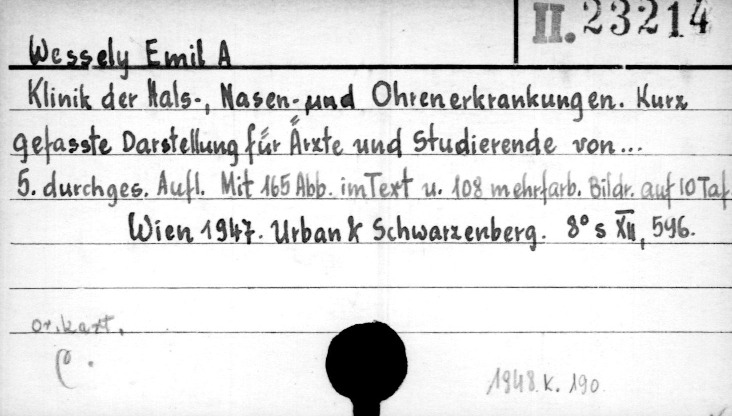 II. 23214
Wessely Emil A
Klinik der Hals-, Nasen- und Ohrenerkrankungen. Kurz
gefasste Darstellung für Ärxte und Studierende von...
5. durchges. Aufl. Mit 165 Abb. im Text u. 108 mehrfarb. Bildr. auf 10 Taf
Wien 1947. Urban & Schwarzenberg. 8° s XII, 596.
or. kart.
C.
1948. K. 190.